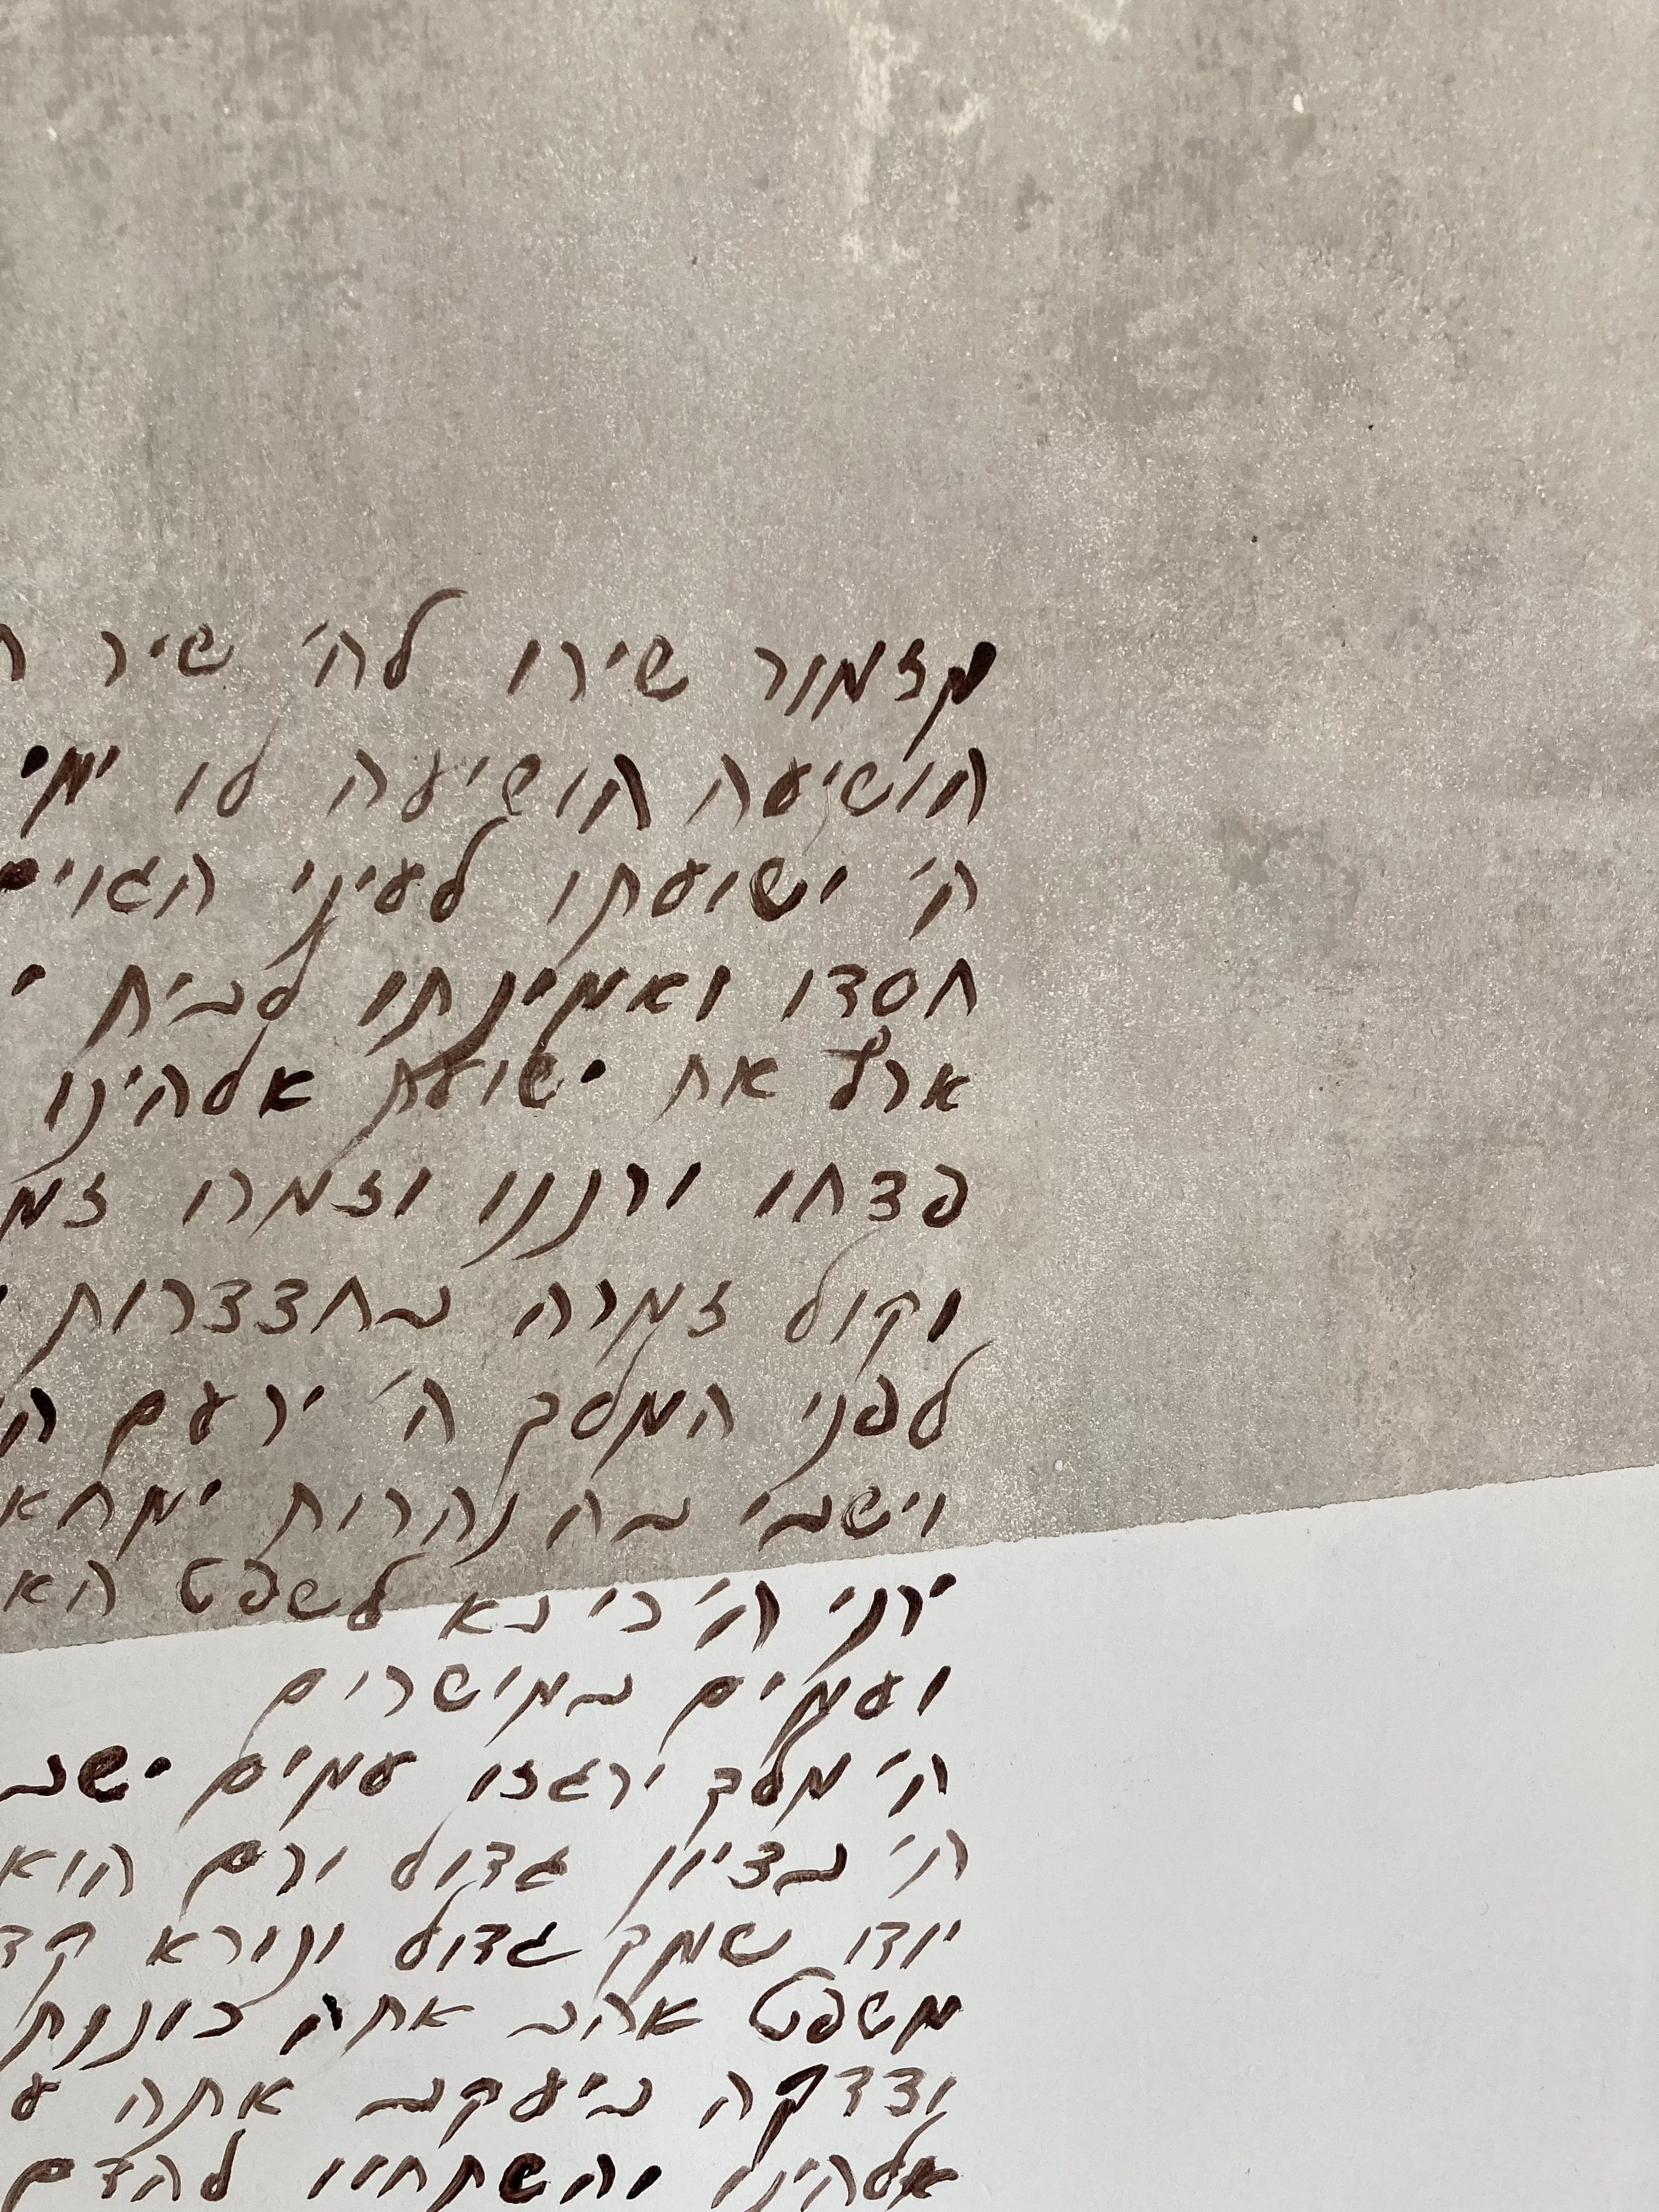 מזמור שירו לה׳ שיר
הושיעה הושיעה לו ימי
ה׳ ישועתו לעיני הגוים
חסדו ואמינתו לבית
ארץ את ישועת אלהינו
פצחו ורננו וזמרו זמ
וקול זמרה בחצצרות
לפני המלך ה׳ ירעם
וישבי בה נהרות ימחא
ירני ה׳ כי בא לשפט הא
ועמים במישרים
ה׳ מלך ירגזו עמים ישב
ה׳ בציון גדול ורם הוא
יודו שמך גדול ונורא קד
משפט אהב אתה כוננת
וצדקה ביעקב אתה ע
אלהינו והשתחוו להדם